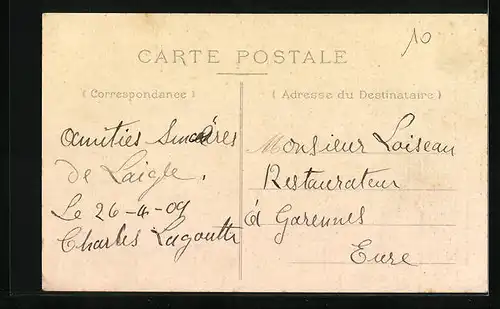 10
CARTE POSTALE
(Correspondance)
(Adresse du Destinataire)
Amitiés Sincères
de Laigle.
Le 26-4-09
Charles
Monsieur Loiseau
Restaurateur
à Garennes
Eure